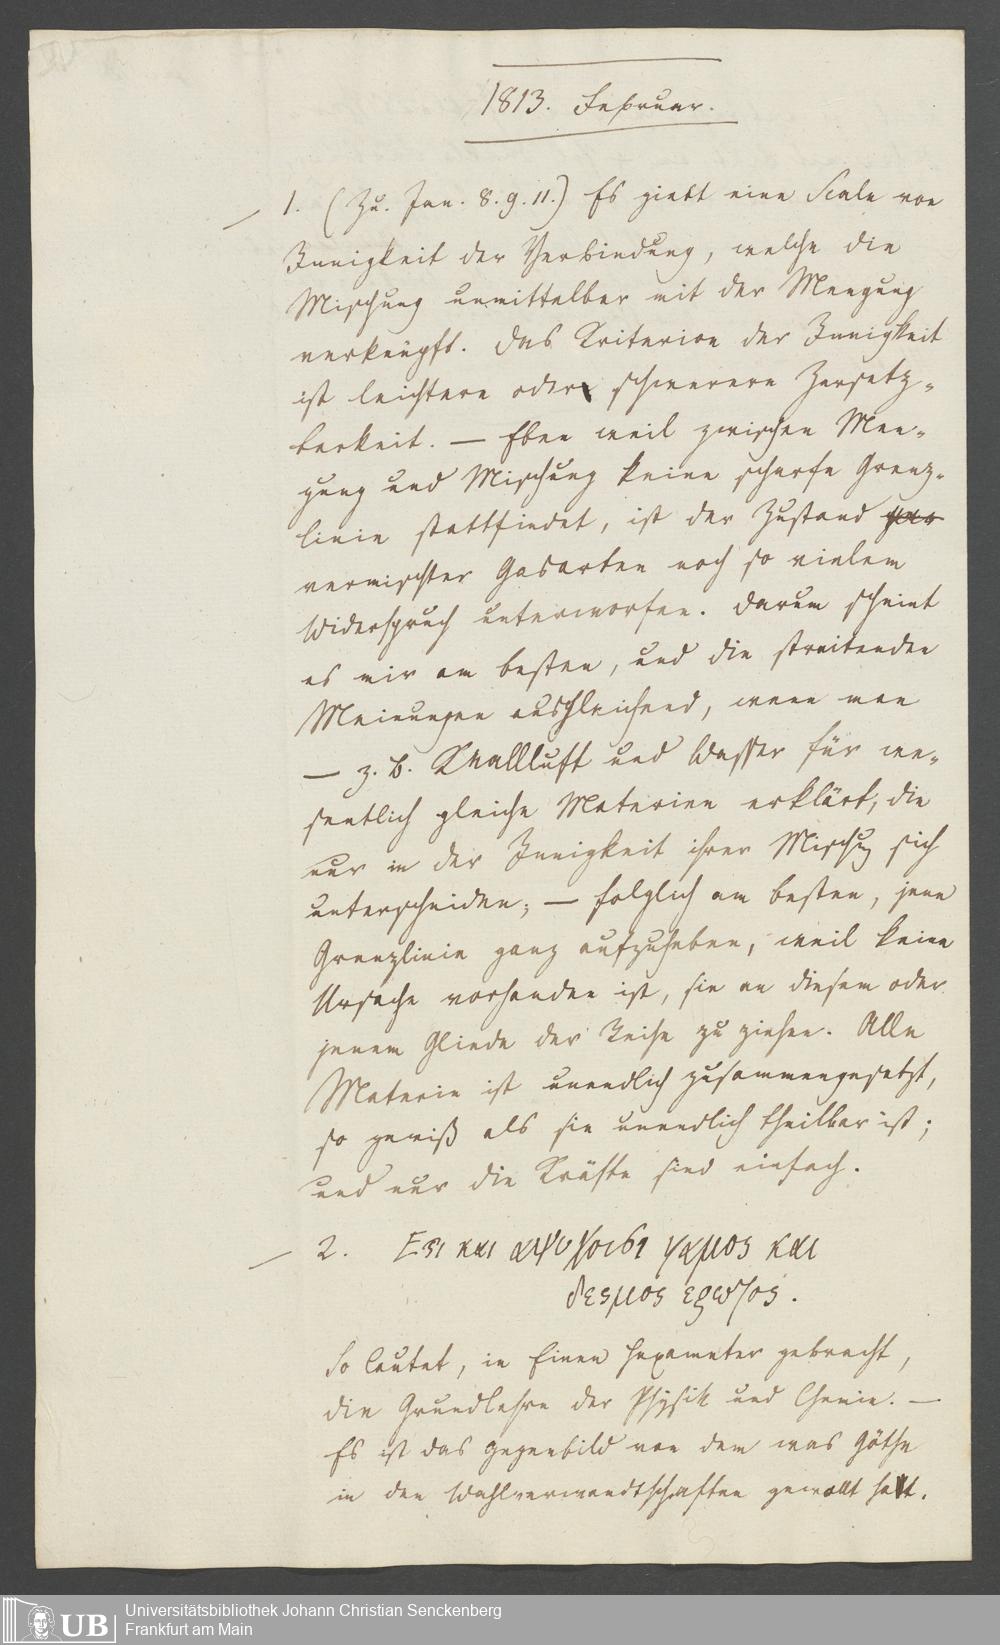 1813. Februar.
1. (Zu. Jan. 8. 9. 11.) Es giebt eine Scale von
Innigkeit der Verbindung, welche die
Mischung unmittelbar mit der Mengung
verknüpft. Das Kriterion der Innigkeit
ist leichtere oder schwerere Zersetz-
barkeit. — Eben weil zwischen Men-
gung und Mischung keine scharfe Grenz-
linie stattfindet, ist der Zustand
vermischter Gasarten noch so vielem
Widerspruch unterworfen. Darum scheint
es mir am besten, und die streitenden
Meinungen ausgleichend, wenn man
— z. B. Knallluft und Wasser für we-
sentlich gleiche Materien erklärt, die
nur in der Innigkeit ihrer Mischung sich
unterscheiden; — folglich am besten, jene
Grenzlinie ganz aufzuheben, weil keine
Ursache vorhanden ist, sie an diesem oder
jenem Gliede der Reihe zu ziehen. Alle
Materie ist unendlich zusammengesetzt,
so gewiß als sie unendlich theilbar ist;
und nur die Kräfte sind einfach.
2. Εϛι και αψυχοισι γαμος και
δεσμος ερωτος.
So lautet, in Einen Hexameter gebracht,
die Grundlehre der Physik und Chemie. —
Es ist das Gegenbild von dem was Göthe
in den Wahlverwandtschaften gewollt hat.
Universitätsbibliothek Johann Christian Senckenberg
UB Frankfurt am Main